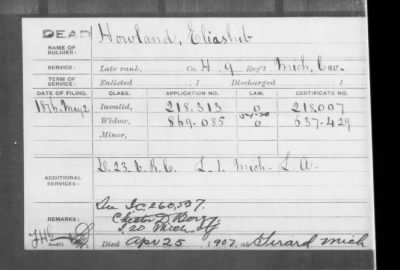 DEAD
NAME OF SOLDIER: Howland, Eliashib
SERVICE: Late rank, Co. H. 9 Reg't Mich. Cav.
TERM OF SERVICE: Enlisted 1 Discharged 1
DATE OF FILING. CLASS. APPLICATION NO. LAW. CERTIFICATE NO.
1876, May 2 Invalid, 218.313 0 218.007
Widow, 869.085 0 637.429
Minor,
ADDITIONAL SERVICES: D. 23. V.R.C. L. 1. Mich. L.A.
REMARKS: See I.C. 260,537.
Chester D
I 20 Mich.
Died Apr 25, 1907, at Girard Mich